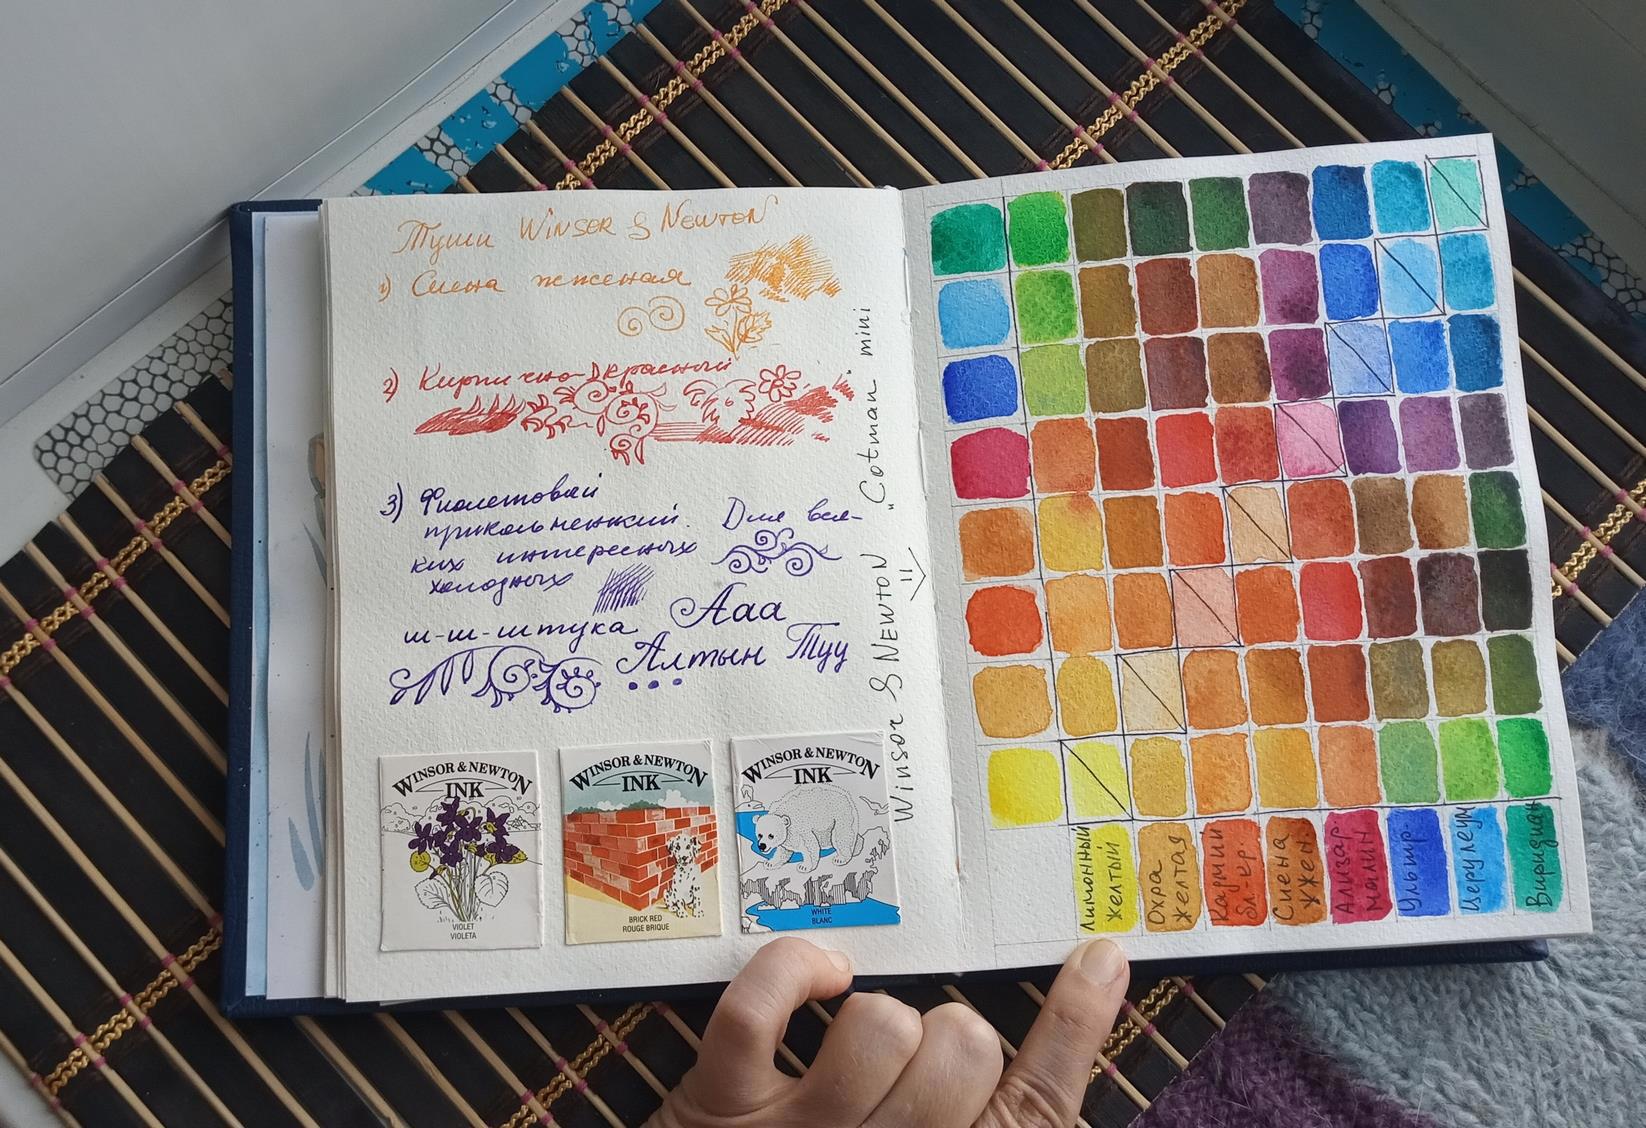 Туши WINSOR & NEWTON
1) Сиена жженая
2) Кирпично-красный
3) Фиолетовый
прикольненький. Для вся-
ких интересных
холодных
ш-ш-штука Ааа
Алтын Туу
WINSOR & NEWTON
INK
VIOLET
VIOLETA
WINSOR & NEWTON
INK
BRICK RED
ROUGE BRIQUE
WINSOR & NEWTON
INK
WHITE
BLANC
Winsor & Newton "Cotman" mini
Лимонный
желтый
Охра
желтая
Кадмий
бл-кр.
Сиена
жжен.
Ализар.
малин.
Ультр.
Церулеум
Виридиан